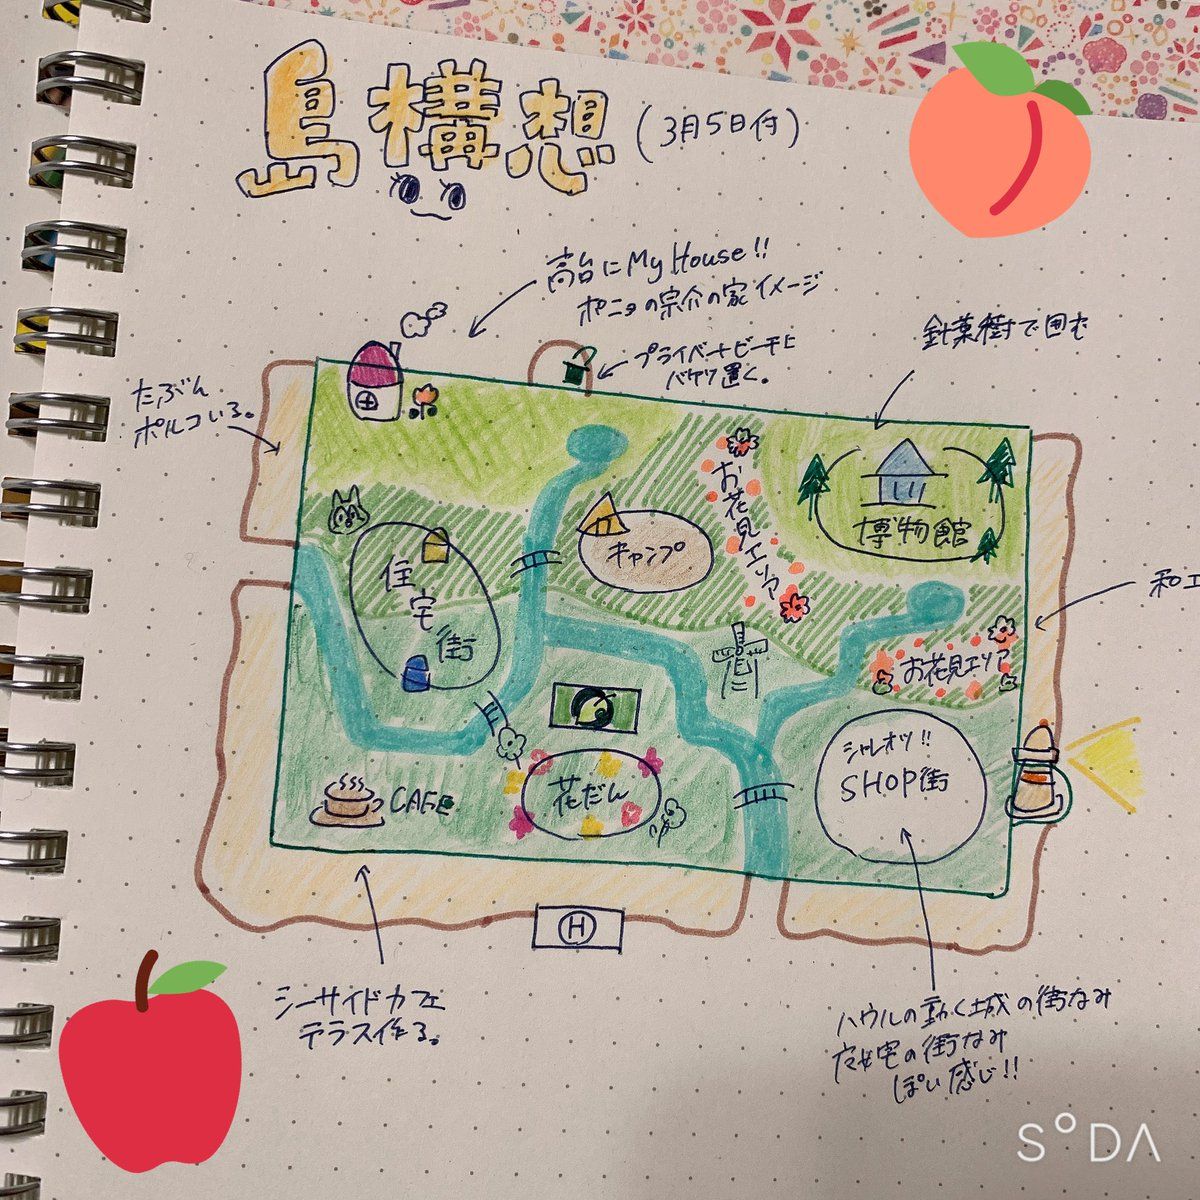 島構想 (3月5日付)
高台にMy House!!
ポニョの宗介の家イメージ
プライベートビーチに
バケツ置く。
針葉樹で囲む
たぶん
ポルコいる。
お花見エリア
博物館
キャンプ
住宅街
和エ
お花見エリア
シャレオツ!!
SHOP街
花だん
CAFE
H
シーサイドカフェ
テラス作る。
ハウルの動く城の街なみ
魔女宅の街なみ
ぽい感じ!!
SODA